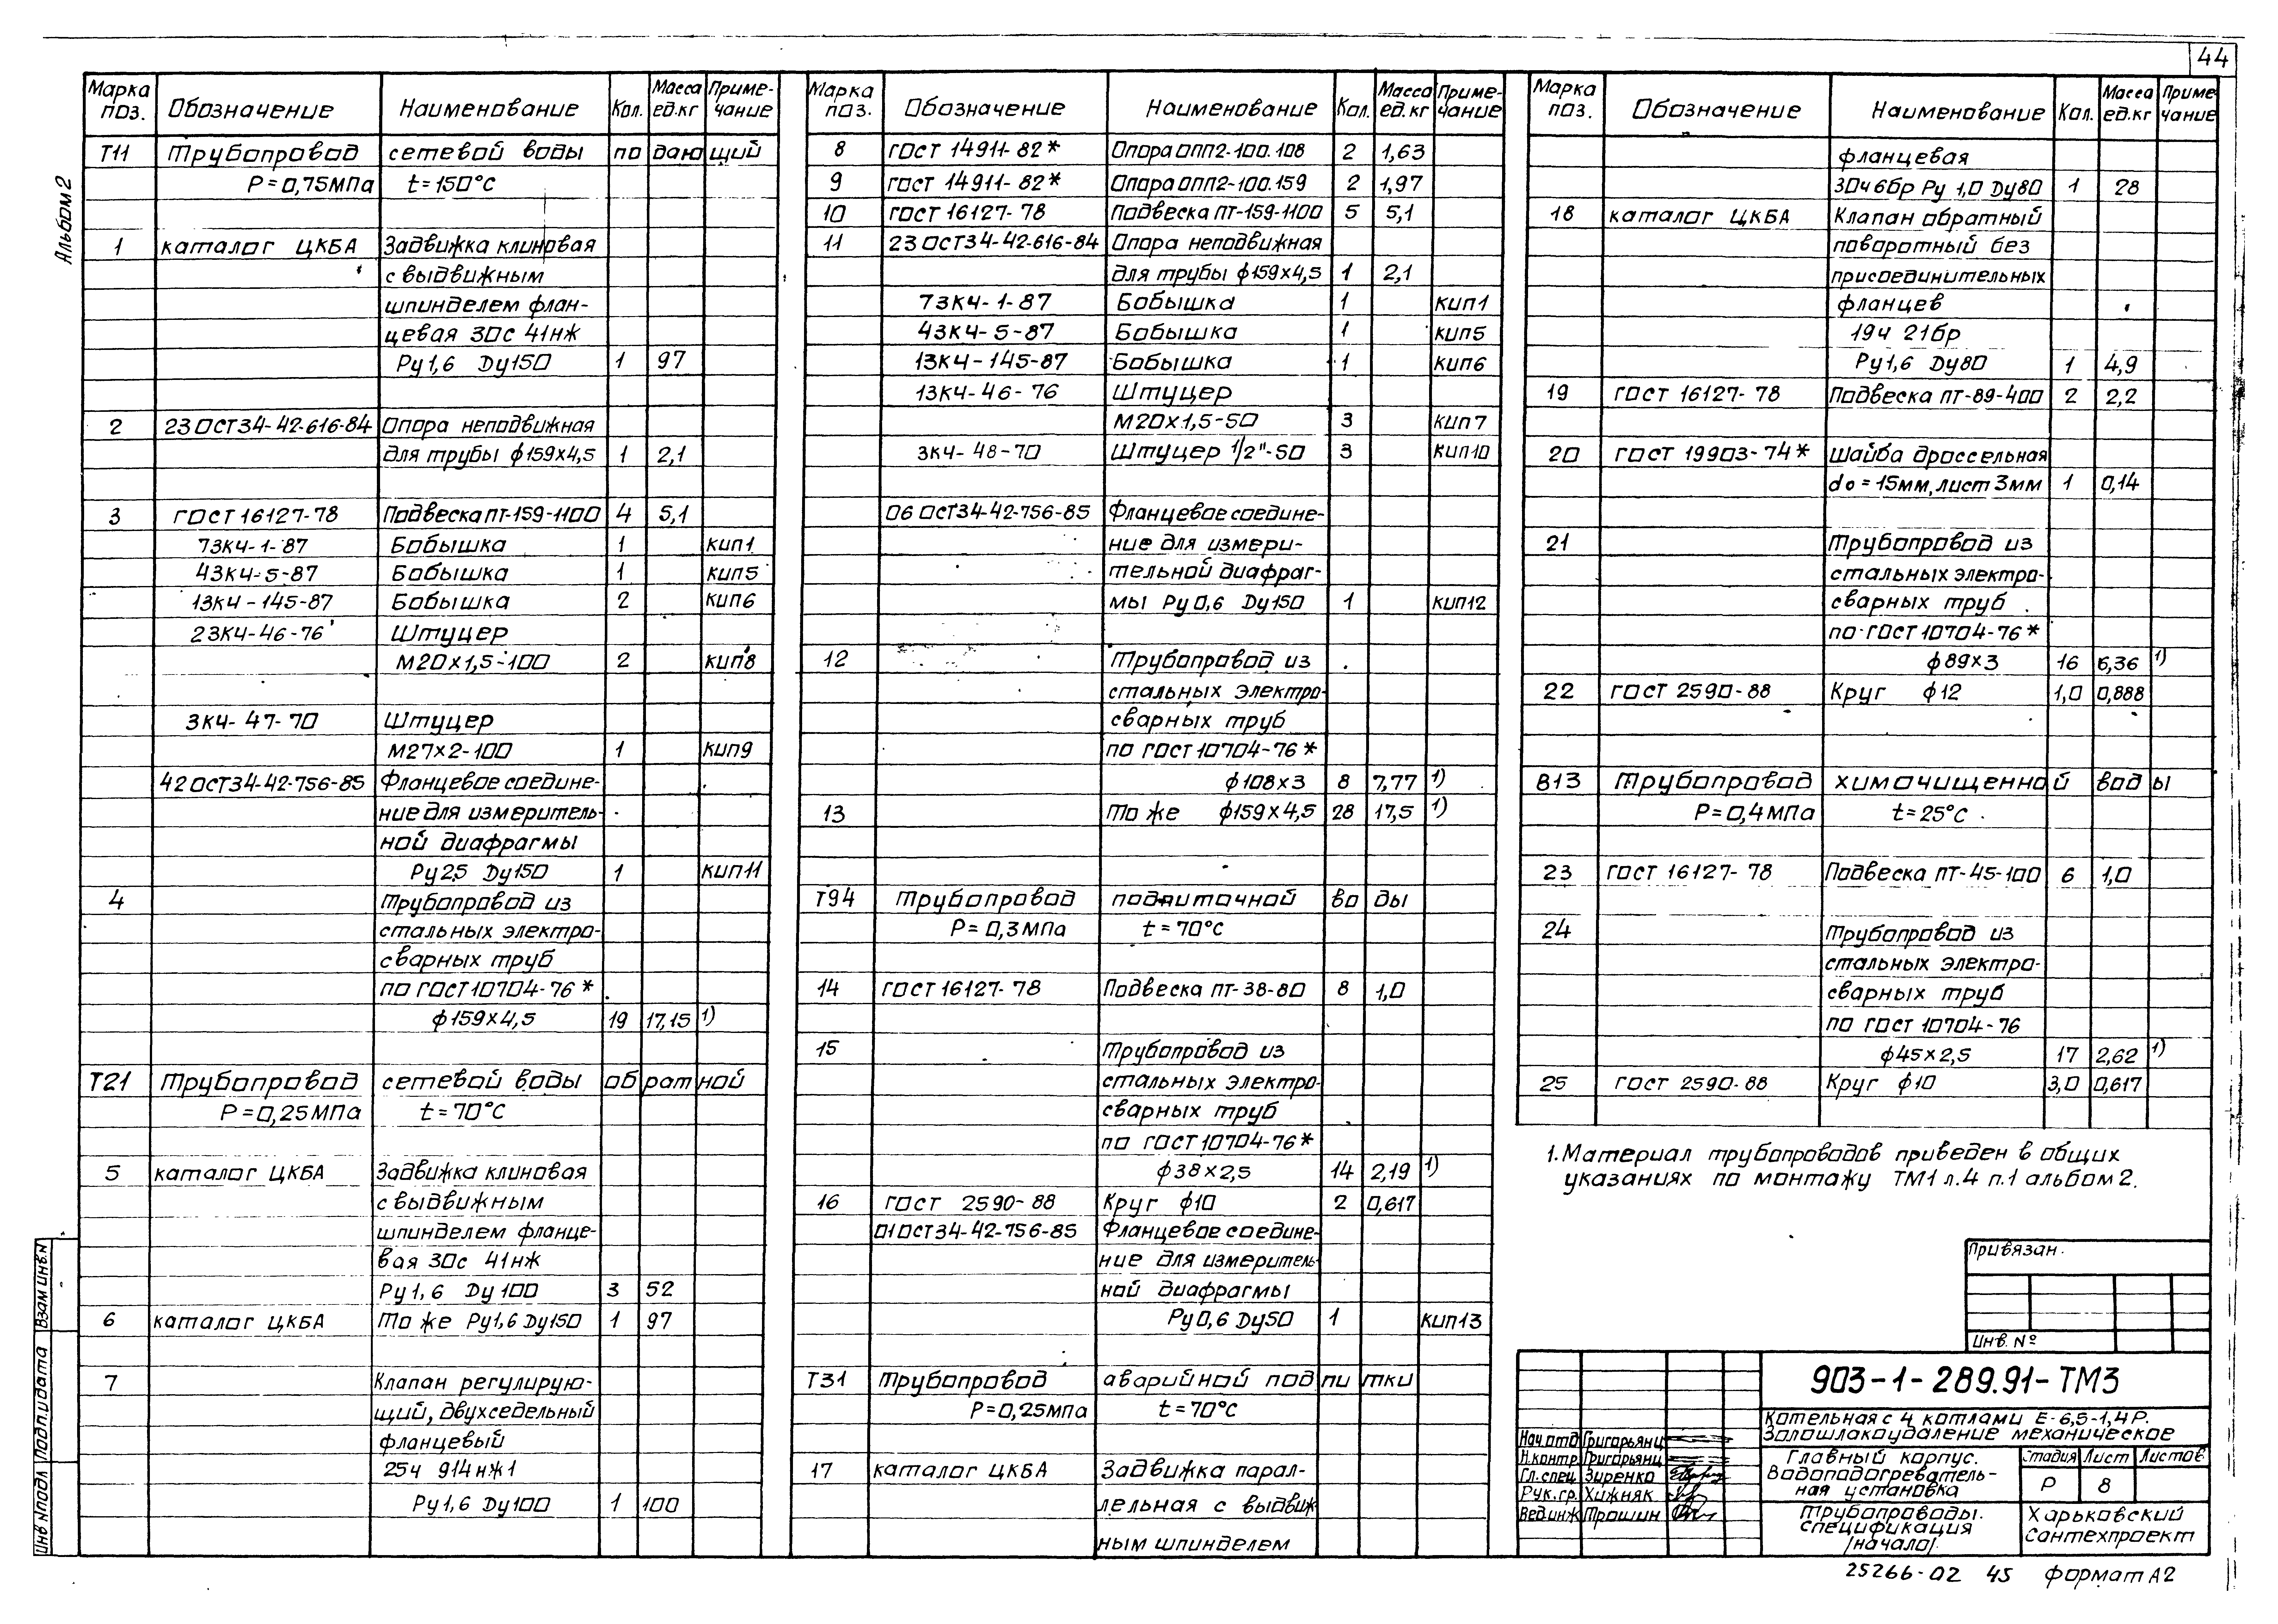 44
Альбом 2
Марка поз. Обозначение Наименование Кол. Масса ед.кг Примечание
Т11 Трубопровод сетевой воды подающий
Р=0,75МПа t=150°С
1 каталог ЦКБА Задвижка клиновая
с выдвижным
шпинделем флан-
цевая 30с 41нж
Ру1,6 Ду150 1 97
2 23 ОСТ34-42-616-84 Опора неподвижная
для трубы ф159х4,5 1 2,1
3 ГОСТ 16127-78 Подвеска ПТ-159-1100 4 5,1
73КЧ-1-87 Бобышка 1 КИП1
43КЧ-5-87 Бобышка 1 КИП5
13КЧ-145-87 Бобышка 2 КИП6
23КЧ-46-76 Штуцер
М20х1,5-100 2 КИП8
3КЧ-47-70 Штуцер
М27х2-100 1 КИП9
42 ОСТ34-42-756-85 Фланцевое соедине-
ние для измеритель-
ной диафрагмы
Ру25 Ду150 1 КИП11
4 Трубопровод из
стальных электро-
сварных труб
по ГОСТ 10704-76*
ф159х4,5 19 17,15 1)
Т21 Трубопровод сетевой воды обратной
Р=0,25МПа t=70°С
5 каталог ЦКБА Задвижка клиновая
с выдвижным
шпинделем фланце-
вая 30с 41нж
Ру1,6 Ду100 3 52
6 каталог ЦКБА То же Ру1,6 Ду150 1 97
7 Клапан регулирую-
щий, двухседельный
фланцевый
25ч 914нж1
Ру1,6 Ду100 1 100
Марка поз. Обозначение Наименование Кол. Масса ед.кг Примечание
8 ГОСТ 14911-82* Опора ОПП2-100.108 2 1,63
9 ГОСТ 14911-82* Опора ОПП2-100.159 2 1,97
10 ГОСТ 16127-78 Подвеска ПТ-159-1100 5 5,1
11 23 ОСТ34-42-616-84 Опора неподвижная
для трубы ф159х4,5 1 2,1
73КЧ-1-87 Бобышка 1 КИП1
43КЧ-5-87 Бобышка 1 КИП5
13КЧ-145-87 Бобышка 1 КИП6
13КЧ-46-76 Штуцер
М20х1,5-50 3 КИП7
3КЧ-48-70 Штуцер 1/2"-50 3 КИП10
06 ОСТ34-42-756-85 Фланцевое соедине-
ние для измери-
тельной диафраг-
мы Ру0,6 Ду150 1 КИП12
12 Трубопровод из
стальных электро-
сварных труб
по ГОСТ 10704-76*
ф108х3 8 7,77 1)
13 То же ф159х4,5 28 17,5 1)
Т94 Трубопровод подпиточной воды
Р=0,3МПа t=70°С
14 ГОСТ 16127-78 Подвеска ПТ-38-80 8 1,0
15 Трубопровод из
стальных электро-
сварных труб
по ГОСТ 10704-76*
ф38х2,5 14 2,19 1)
16 ГОСТ 2590-88 Круг ф10 2 0,617
01 ОСТ34-42-756-85 Фланцевое соедине-
ние для измеритель-
ной диафрагмы
Ру0,6 Ду50 1 КИП13
Т31 Трубопровод аварийной подпитки
Р=0,25МПа t=70°С
17 каталог ЦКБА Задвижка парал-
лельная с выдвиж
ным шпинделем
Марка поз. Обозначение Наименование Кол. Масса ед.кг Примечание
фланцевая
30ч6бр Ру 1,0 Ду80 1 28
18 каталог ЦКБА Клапан обратный
поворотный без
присоединительных
фланцев
19ч 21бр
Ру1,6 Ду80 1 4,9
19 ГОСТ 16127-78 Подвеска ПТ-89-400 2 2,2
20 ГОСТ 19903-74* Шайба дроссельная
do=15мм, лист 3мм 1 0,14
21 Трубопровод из
стальных электро-
сварных труб
по ГОСТ 10704-76*
ф89х3 16 6,36 1)
22 ГОСТ 2590-88 Круг ф12 1,0 0,888
В13 Трубопровод химочищенной воды
Р=0,4МПа t=25°С
23 ГОСТ 16127-78 Подвеска ПТ-45-100 6 1,0
24 Трубопровод из
стальных электро-
сварных труб
по ГОСТ 10704-76
ф45х2,5 17 2,62 1)
25 ГОСТ 2590-88 Круг ф10 3,0 0,617
1. Материал трубопроводов приведен в общих
указаниях по монтажу ТМ1 л.4 п.1 альбом 2.
Привязан.
Инв. №
903-1-289.91-ТМ3
Котельная с 4 котлами Е-6,5-1,4Р.
Золошлакоудаление механическое
Нач.отд Григорьянц
Н.контр. Григорьянц
Гл.спец Зиренко
Рук.гр. Хижняк
Вед.инж Трошин
Главный корпус.
Водоподогреватель-
ная установка
Стадия Лист Листов
Р 8
Трубопроводы.
Спецификация
/начало/.
Харьковский
Сантехпроект
25266-02 45 формат А2
Инв №подл Подп. и дата Взам инв. N